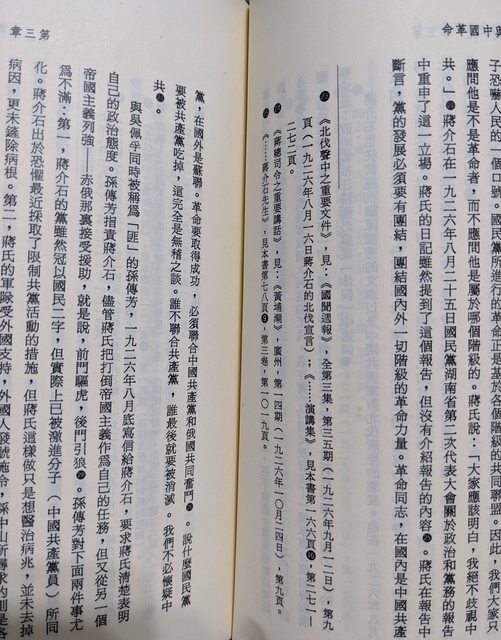 與中國革命
子恐嚇人民的一個口號。國民黨所進行的革命正是基於各個階級的共同同盟。因此，我們大家只
應問他是不是革命者，而不應問他是屬於哪個階級的。蔣氏說：「大家應該明白，我絕不歧視中
共。」㉔蔣介石在一九二六年八月二十五日國民黨湖南省第二次代表大會關於政治和黨務的報告
中重申了這一立場。蔣氏的日記雖然提到了這個報告，但沒有介紹報告的內容㉕。蔣氏在報告中
斷言，黨的發展必須要有團結，團結國內外一切階級的革命力量。革命同志，在國內是中國共產
《北伐聲中之重要文件》，見：《國聞週報》，全第三集，第三五期（一九二六年九月一二日），第九
頁（一九二六年八月一六日蔣介石的北伐宣言）；《……演講集》，見本書第一六六頁，第二七一—
二七二頁。
《蔣總司令之重要講話》，見：《黃埔潮》，廣州，第一四期（一九二六年一〇月二四日），第九頁。
《……蔣介石先生》，見本書第七八頁，第三卷，第一〇一九頁。
第三章
黨，在國外是蘇聯。革命要取得成功，必須聯合中國共產黨和俄國共同奮鬥。說什麼國民黨
要被共產黨吃掉，這完全是無稽之談。誰不聯合共產黨，誰最後就要被消滅。我們不必懷疑中
共。
與吳佩孚同時被稱為「匪」的孫傳芳，一九二六年八月底寫信給蔣介石，要求蔣氏清楚表明
自己的政治態度。孫傳芳指責蔣介石，儘管蔣氏把打倒帝國主義作為自己的任務，但又從另一個
帝國主義列強——赤俄那裏接受援助，就是說，前門驅虎，後門引狼。孫傳芳對下面兩件事尤
為不滿：第一，蔣介石的黨雖然冠以國民二字，但實際上已被激進分子（中國共產黨員）所同
化。蔣介石出於恐懼最近採取了限制共黨活動的措施，但蔣氏這樣做只是想醫治病兆，並未去掉
病因，更未鏟除病根。第二，蔣氏的軍隊受外國支持，外國人發號施令，孫中山所尋求的則是各